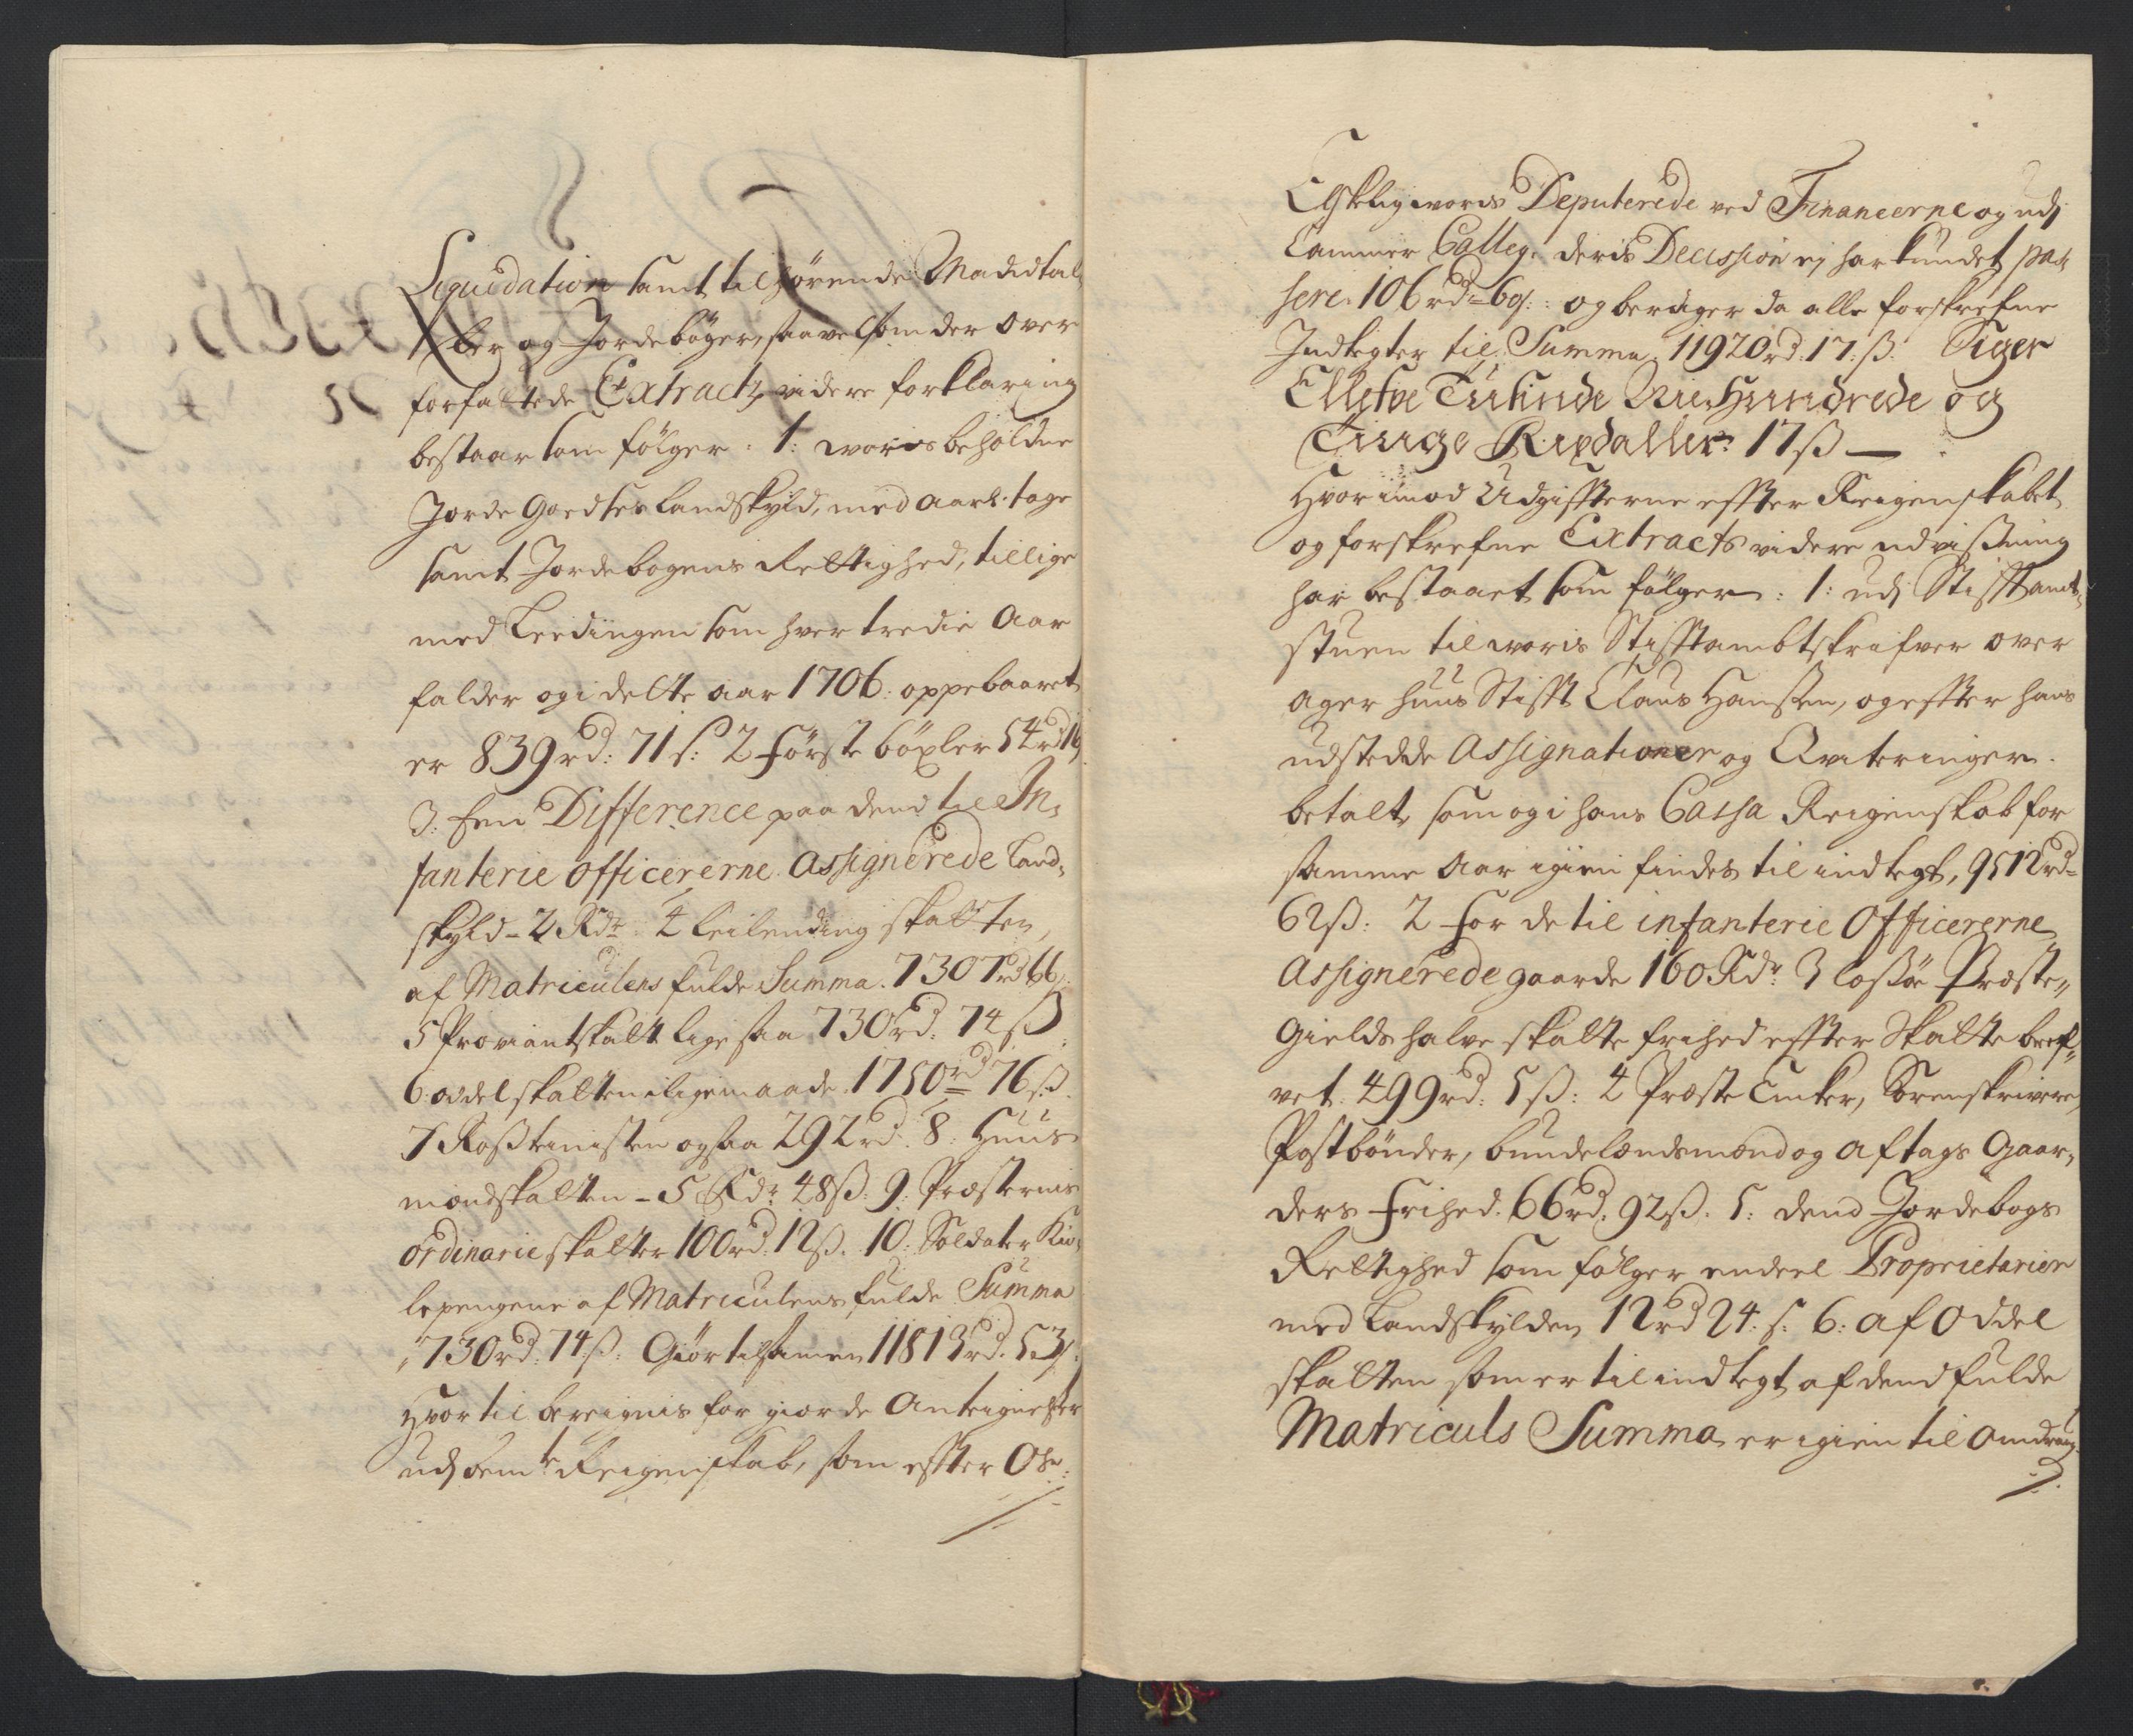 Liquidation samt tilhørende Mandtal
ler og Jordebøger, saavelsom der over
forfattede Extracts videre forklaring
bestaar som følger: 1: woris beholdne
Jorde Goedses Landskyld, med aarl: tage
samt Jordebogens Rettighed, tillige
med Leedingen som hver tredie Aar
falder og i dette aar 1706: oppebaaret
er 839rd: 71s: 2 Første böxler 54rd
3: Een Difference paa dend til In¬
fanterie Officererne Assignerede Land¬
skyld - 2 Rdr: 4 Leilending skatten,
af Matriculens fulde Summa. 7307rd 66s:
5 Proviantskatt lige saa 730rd: 74ß
6: oddelskatten iligemaade 1750rd 76ß
7 Rostienisten ogsaa 292rd: 8: Huus¬
mandskatten - 5 Rdr: 48ß: 9: Præsternis
ordinarie skatter 100rd: 12ß. 10: Soldater Kio¬
lepengene af Matriculens fulde Summa
730rd: 74ß. Giør tilsamen 11813rd. 53s:
Hvortil bereignis for giorde Anteignelser
udj bemte Reigenskab, som effter Oß
Elskelig woris Deputerede ved Financerne og udj
Cammer Colleg: deris Decission ej har kundet pas
sere. 106rd= 60s: og beräger da alle forskrefne
Indtegter til Summa. 11920rd. 17: ß. Siger
Ellefve Tusinde Nie Hundrede og
Tiuge Rixdaller: 17ß —
Hvorimod Udgiffterne effter Reigenskabet
og forskrefne Extracts videre udvißning
har bestaaet som følger: 1: udj Stifftamt¬
stuen til woris Stifftambtskrifver over
Agerhuus Stifft Claus Hanßen, og effter hans
udstedde Assignationer og Qviteringer
betalt, som og i hans Cassa Reigenskab for
samme Aar igien findes til indtegt, 9512rd=
62ß: 2 For de til infanterie Officererne
Assignerede gaarde 160 Rdr: 3 Præste¬
Gields halve skatte frihed effter Skattebref¬
vet. 499rd: 5ß: 4 Præste Encker, Sorenskrivere,
Postbønder, bundelændsmænd og aftags Gaar¬
ders Frihed. 66rd. 92ß. 5: dend Jordebogs
Rettighed som følger endeel Proprietarier
med Landskylden 12rd 24: s: 6: af Oddel
skatten som er til indtegt af dend fulde
Matriculs Summa er igien til